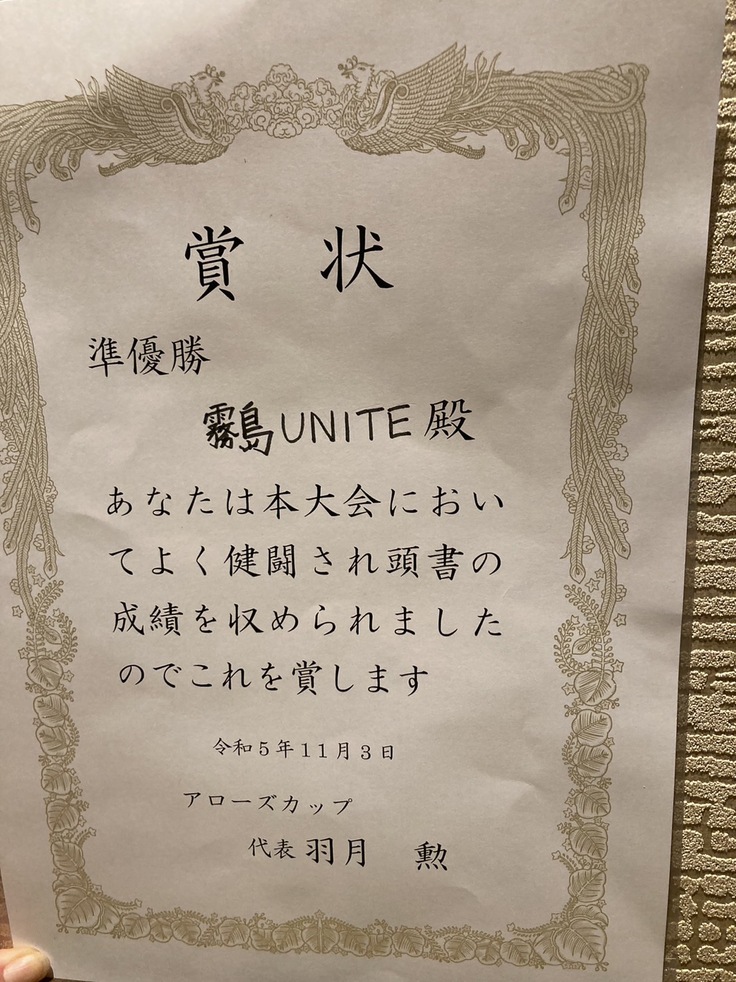 賞状
準優勝
霧島UNITE殿
あなたは本大会におい
てよく健闘され頭書の
成績を収められました
のでこれを賞します
令和5年11月3日
アローズカップ
代表 羽月 勲